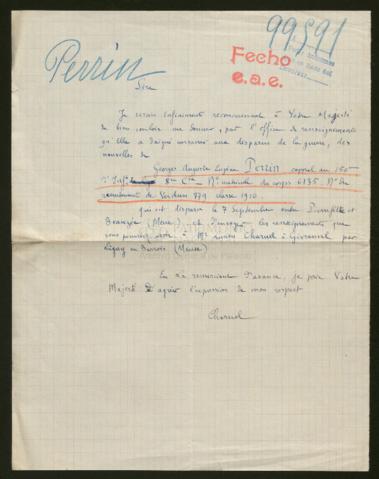 99591
Perrin
Fecho
e.a.e.
Sire
Je serais infiniment reconnaissant à Votre Majesté
de bien vouloir me donner, par l'Office de renseignements
qu'Elle a daigné consacrer aux disparus de la guerre, des
nouvelles de
Georges Auguste Eugène Perrin caporal au 150me
d'Infie 8me Cie No matricule du corps 6135. No de
recrutement de Verdun 779 classe 1910.
qui est disparu le 7 Septembre entre Pierrefitte et
Beauzée (Meuse) et d'envoyer les renseignements que
vous pourriez avoir à Mr Charuel à Givrauval par
Ligny en Barrois (Meuse)
En vous remerciant d'avance, je prie Votre
Majesté d'agréer l'expression de mon respect
Charuel